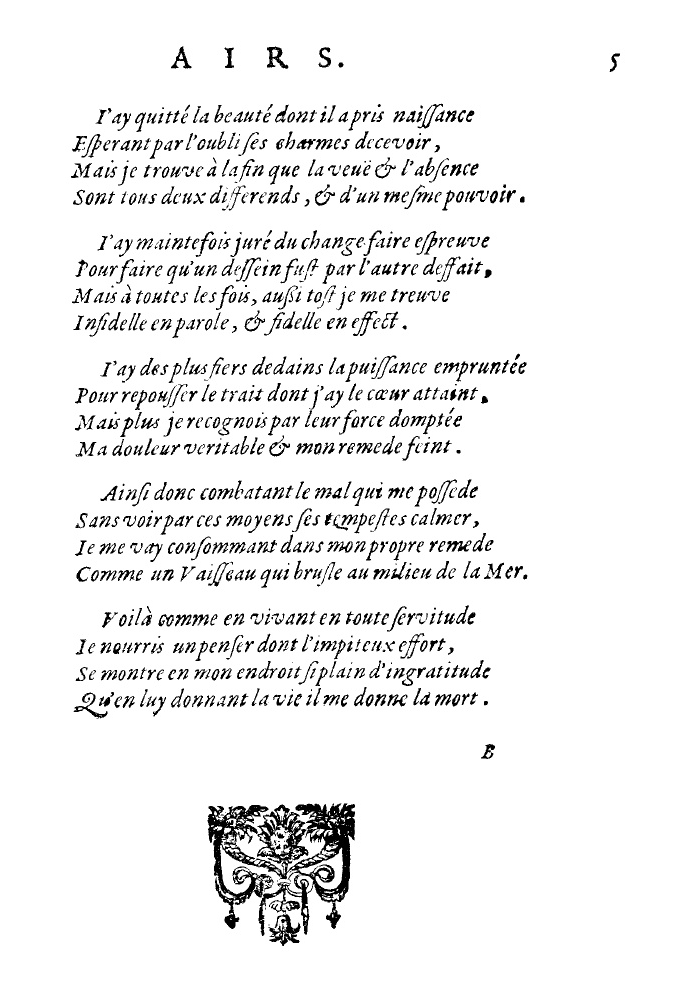 AIRS. 5
I'ay quitté la beauté dont il a pris naiſſance
Eſperant par l'oubli ſes charmes decevoir,
Mais je trouve à la fin que la veuë & l'abſence
Sont tous deux differends, & d'un meſme pouvoir.
I'ay maintefois juré du change faire eſpreuve
Pour faire qu'un deſſein fuſt par l'autre deffait,
Mais à toutes les fois, auſſi toſt je me treuve
Infidelle en parole, & fidelle en effect.
I'ay des plus fiers dedains la puiſſance empruntée
Pour repouſſer le trait dont j'ay le cœur attaint,
Mais plus je recognois par leur force domptée
Ma douleur veritable & mon remede feint.
Ainſi donc combatant le mal qui me poſſede
Sans voir par ces moyens ſes tempeſtes calmer,
Ie me vay conſommant dans mon propre remede
Comme un Vaiſſeau qui bruſle au milieu de la Mer.
Voilà comme en vivant en toute ſervitude
Ie nourris un penſer dont l'impiteux effort,
Se montre en mon endroit ſi plain d'ingratitude
Qu'en luy donnant la vie il me donne la mort.
B